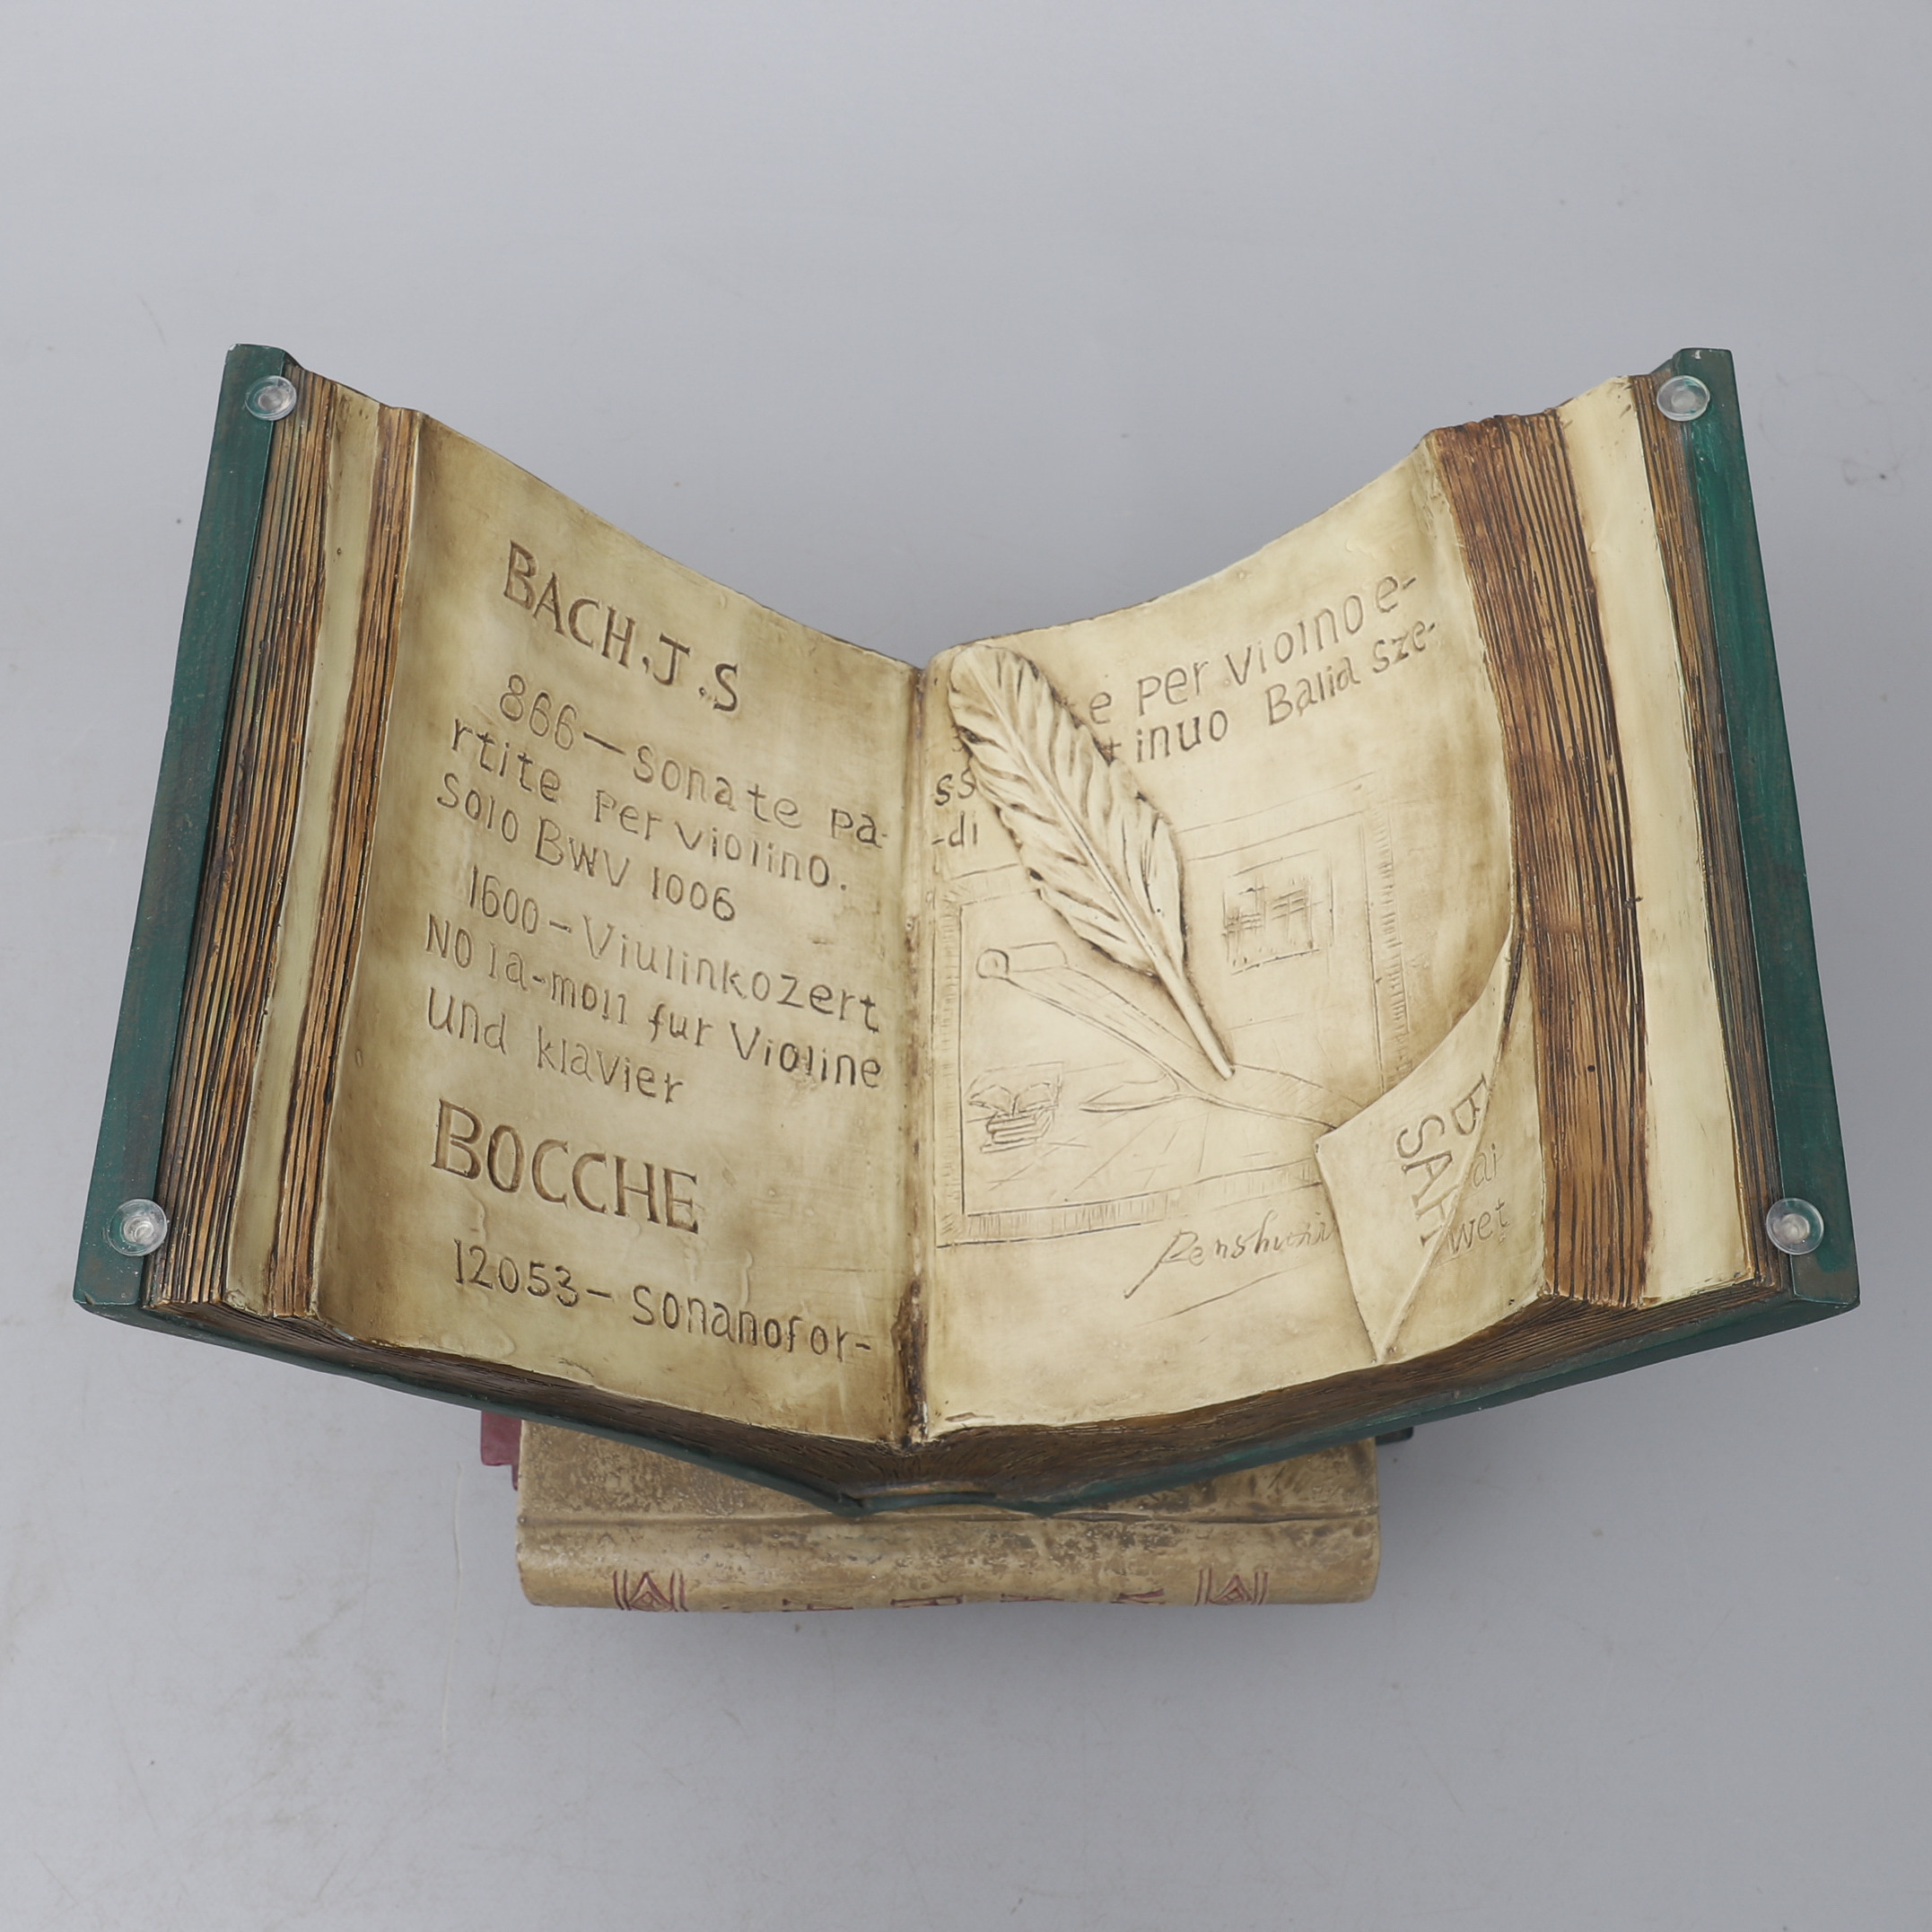 BACH.J.S
866-Sonate Pa-
rtite Per violino.
Solo BWV 1006
1600-Viulinkozert
NO 1a-moll fur Violine
und klavier
BOCCHE
12053-Sonanofor-
e Per Violno e-
tinuo Balia Sze-
ss
-di
ai
wet